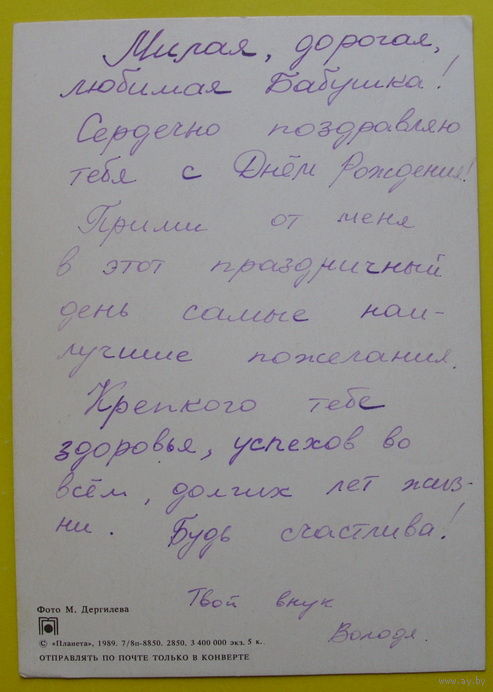 Милая, дорогая,
любимая Бабушка!
Сердечно поздравляю
тебя с Днём Рождения!
Прими от меня
в этот праздничный
день самые наи-
лучшие пожелания.
Крепкого тебе
здоровья, успехов во
всём, долгих лет жиз-
ни. Будь счастлива!
Твой внук
Володя.
Фото М. Дергилева
© «Планета», 1989. 7/8п-8850. 2850. 3 400 000 экз. 5 к.
ОТПРАВЛЯТЬ ПО ПОЧТЕ ТОЛЬКО В КОНВЕРТЕ
www.ay.by